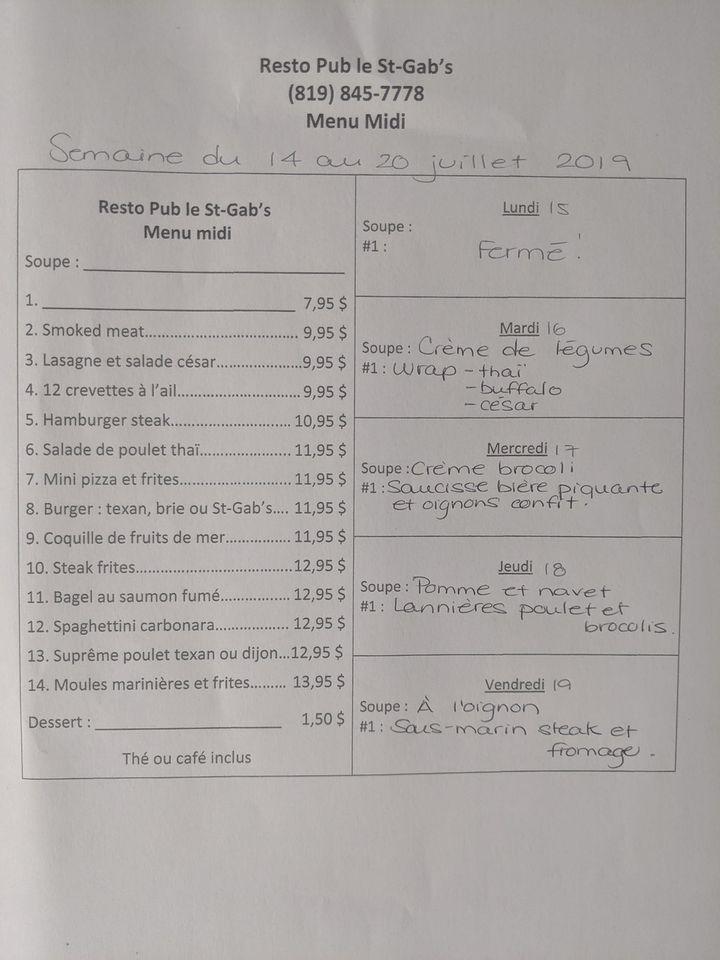 Resto Pub le St-Gab's
(819) 845-7778
Menu Midi
Semaine du 14 au 20 juillet 2019
Resto Pub le St-Gab's
Menu midi
Soupe : ____________________
1. ____________________ 7,95 $
2. Smoked meat.................................... 9,95 $
3. Lasagne et salade césar....................9,95 $
4. 12 crevettes à l'ail............................. 9,95 $
5. Hamburger steak............................ 10,95 $
6. Salade de poulet thaï..................... 11,95 $
7. Mini pizza et frites.......................... 11,95 $
8. Burger : texan, brie ou St-Gab's.... 11,95 $
9. Coquille de fruits de mer............... 11,95 $
10. Steak frites....................................12,95 $
11. Bagel au saumon fumé................ 12,95 $
12. Spaghettini carbonara................. 12,95 $
13. Suprême poulet texan ou dijon...12,95 $
14. Moules marinières et frites......... 13,95 $
Dessert : ____________________ 1,50 $
Thé ou café inclus
Lundi 15
Soupe :
#1 : Fermé !
Mardi 16
Soupe : Crème de légumes
#1 : Wrap - thaï
- buffalo
- césar
Mercredi 17
Soupe : Crème brocoli
#1 : Saucisse bière piquante
et oignons confit.
Jeudi 18
Soupe : Pomme et navet
#1 : Lannières poulet et
brocolis.
Vendredi 19
Soupe : À l'oignon
#1 : Sous-marin steak et
fromage.